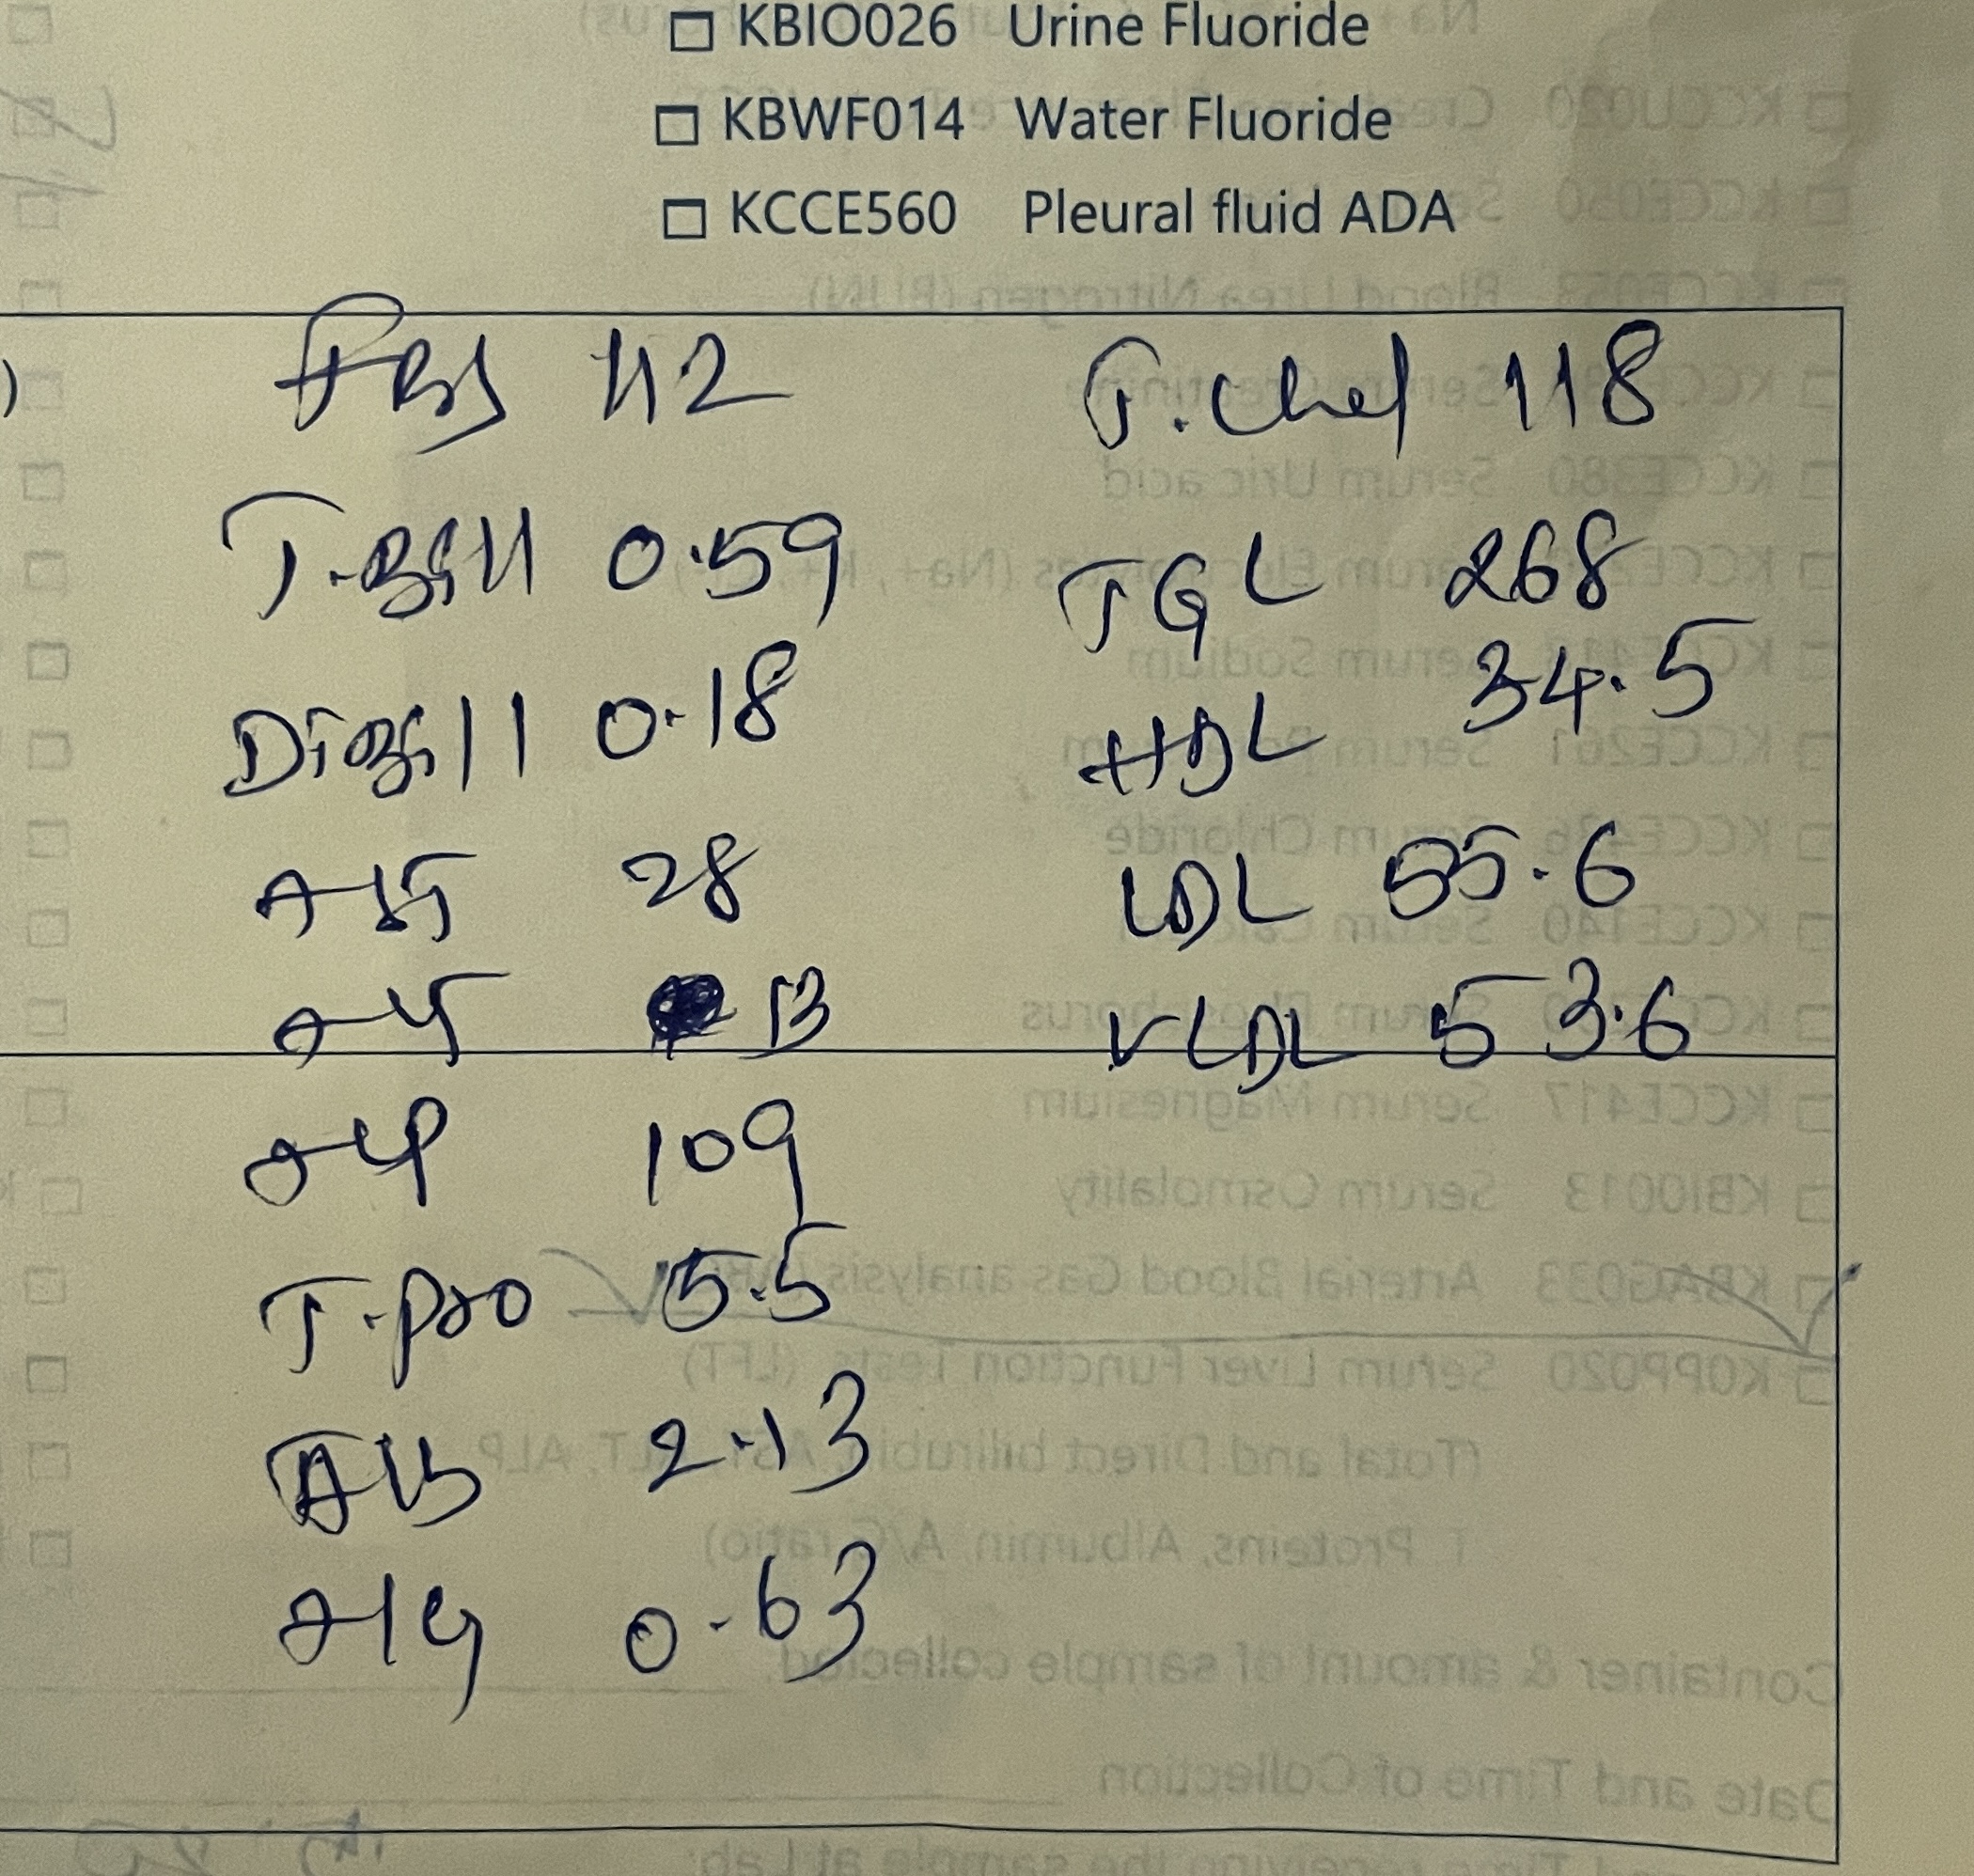 ☐ KBIO026 Urine Fluoride
☐ KBWF014 Water Fluoride
☐ KCCE560 Pleural fluid ADA
FBS 112
T.Bill 0.59
DiBill 0.18
AST 28
ALT 13
ALP 109
T.pro 5.5
Alb 2.13
A/G 0.63
T.Chol 118
TGL 268
HDL 34.5
LDL 55.6
VLDL 53.6